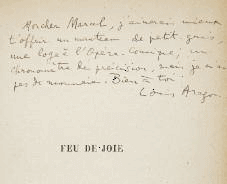 Mon cher Marcel, j'aimerais mieux
t'offrir un manteau de petit gris,
une loge à l'Opéra-Comique, un
chronomètre de précision, mais je n'ai
pas de monnaie. Bien à toi
Louis Aragon
FEU DE JOIE